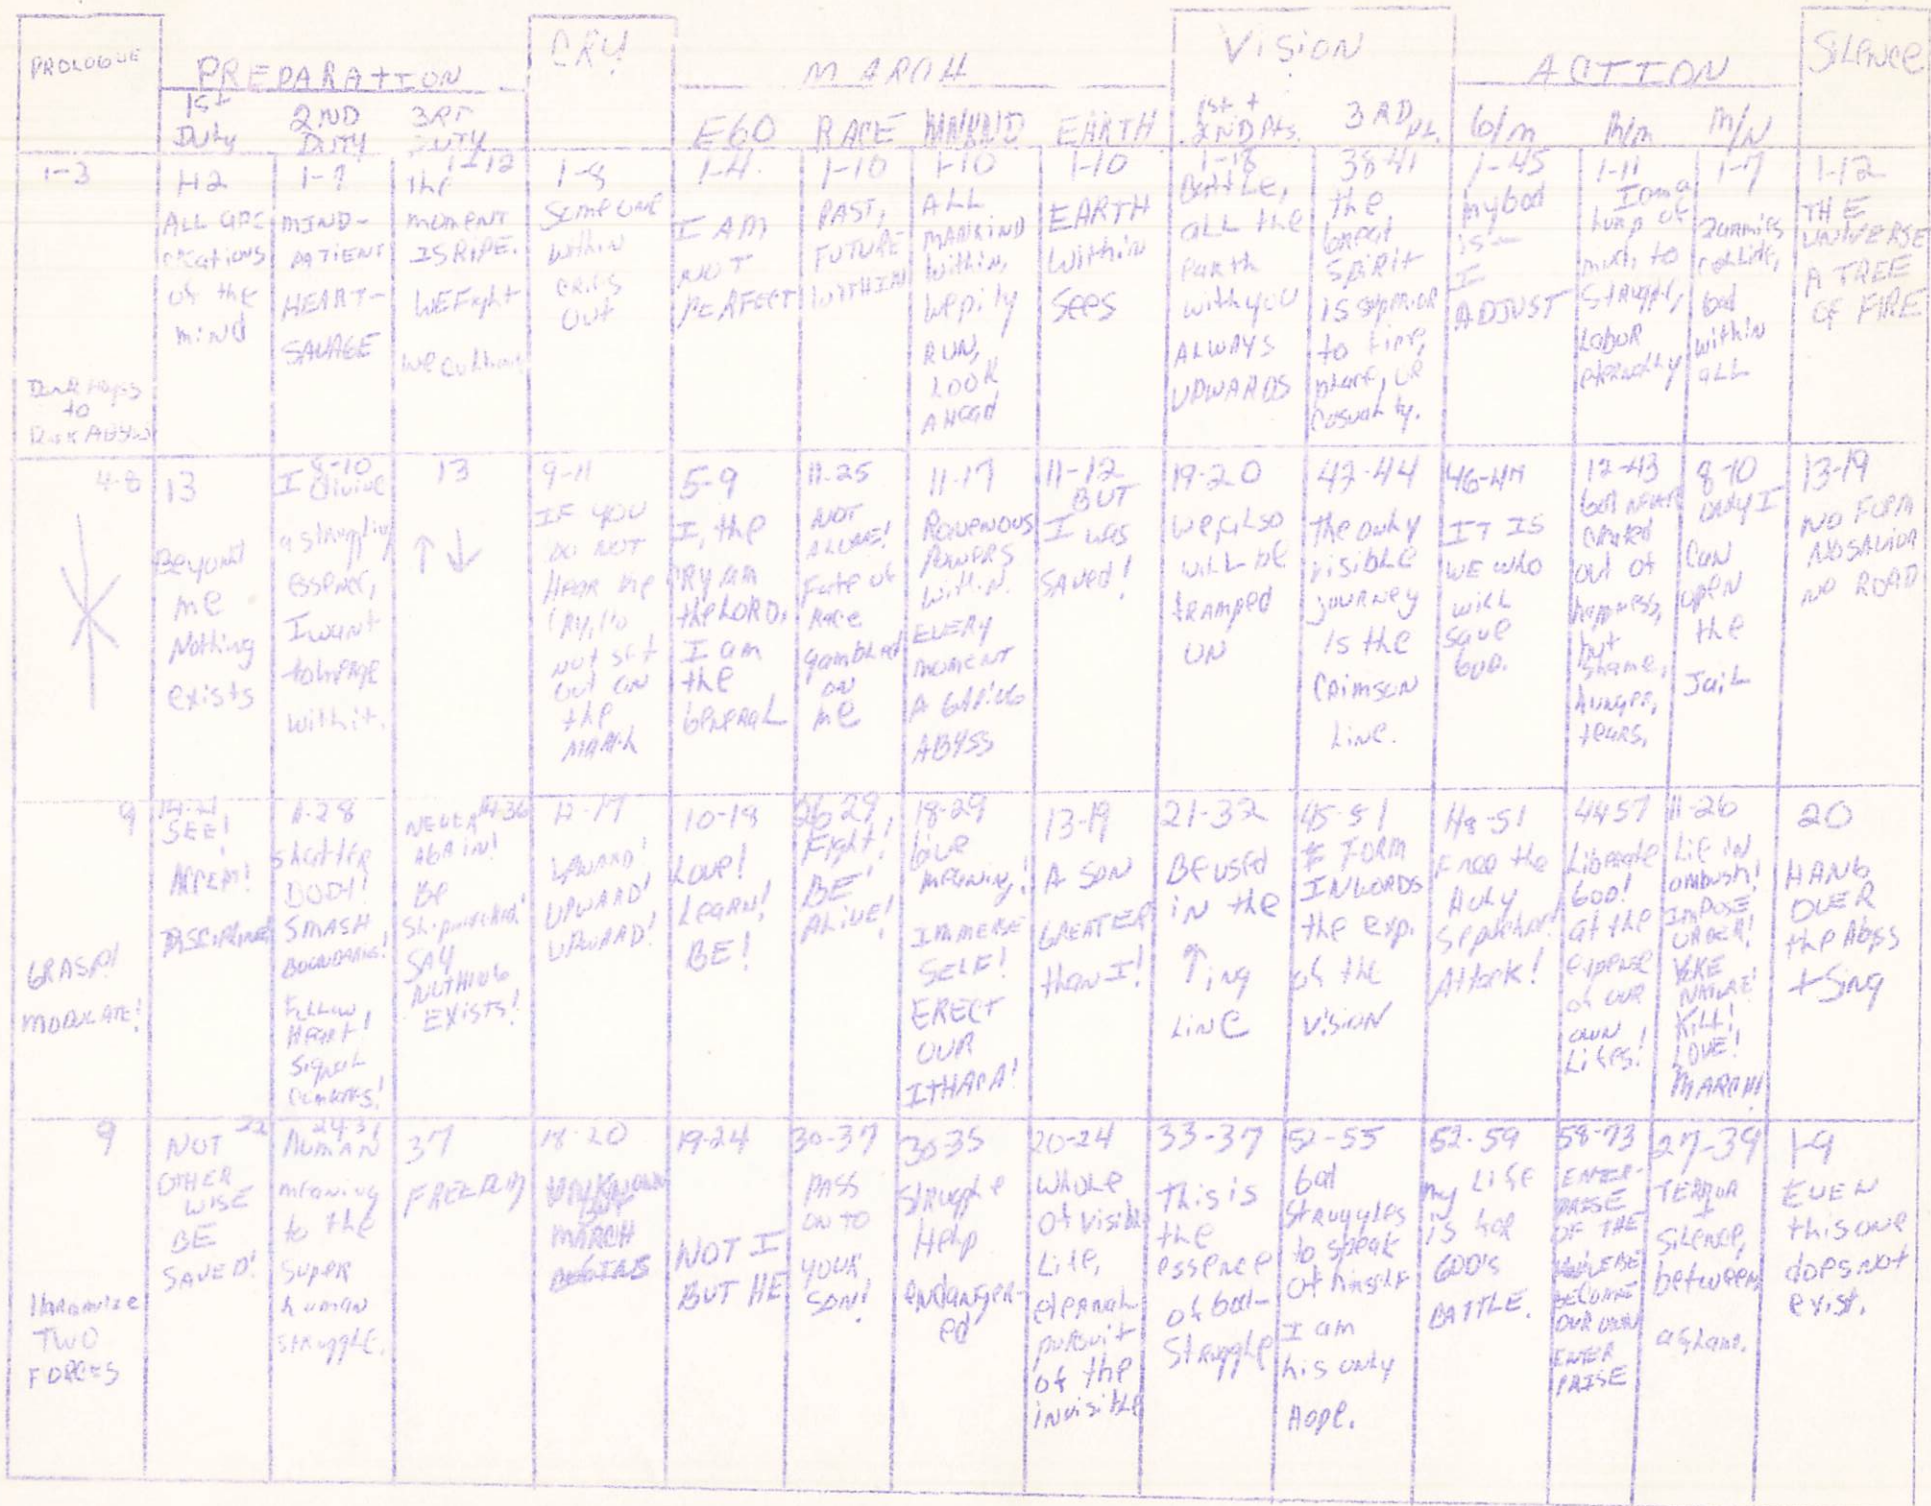 PROLOGUE
PREPARATION
CRY
MARCH
VISION
ACTION
SILENCE
1st Duty
2ND DUTY
3RD DUTY
EGO
RACE
MANKIND
EARTH
1st + 2ND Pts.
3RD Pt.
G/M
M/M
M/N
1-3
Dark Abyss
to
Dark Abyss
1-12
ALL ARE
creations
of the
mind
1-7
MIND-
PATIENT
HEART-
SAVAGE
1-12
the
moment
IS RIPE.
WE Fight
1-8
Someone
within
cries
out
1-4
I AM
NOT
PERFECT
1-10
PAST,
FUTURE
WITHIN
1-10
ALL
MANKIND
within,
we pity
RUN,
LOOK
AHEAD
1-10
EARTH
within
sees
1-18
Battle,
all the
Earth
with you
ALWAYS
UPWARDS
38-41
the
Great
Spirit
is superior
to time,
place, or
Casualty.
1-45
my God
is—
I
ADJUST
1-11
I am a
lump of
mud, to
struggle,
Labor
eternally
1-7
2 armies
collide,
God
within
all
1-12
THE
UNIVERSE
A TREE
OF FIRE
4-8
13
Beyond
me
Nothing
exists
8-10
I divine
a struggling
essence,
I want
to merge
with it.
13
↑↓
9-11
IF YOU
DO NOT
Hear the
Cry, do
not set
out on
the
MARCH
5-9
I, the
Cry am
the LORD.
I am
the
General
11-25
NOT
ALONE!
Fate of
Race
gambled
on
me
11-17
Ravenous
Powers
within.
EVERY
moment
A GAPING
ABYSS
11-12
BUT
I was
saved!
19-20
we also
will be
tramped
on
42-44
the only
visible
journey
is the
Crimson
Line.
46-47
IT IS
WE WHO
will
save
God.
12-43
God never
created
out of
happiness,
but
shame,
hunger,
tears.
8-10
only I
can
open
the
Jail
13-19
NO FORM
NO SAVIOR
NO ROAD
9
GRASP!
MODULATE!
14-21
SEE!
ACCEPT!
DISCIPLINE!
11-28
shatter
BODY!
SMASH
BOUNDARIES!
Follow
Heart!
Signal
Comrades!
14-36
NEVER
AGAIN!
Be
Shipwrecked!
SAY
NOTHING
EXISTS!
12-17
UPWARD!
UPWARD!
UPWARD!
10-18
Love!
Learn!
BE!
26-29
Fight!
BE
ALIVE!
18-29
Give
meaning!
IMMERSE
SELF!
ERECT
OUR
ITHACA!
13-19
A SON
GREATER
than I!
21-32
Be used
in the
↑ing
line
45-51
FORM
IN WORDS
the exp.
of the
vision
48-51
Free the
Holy
Sepulcher!
Attack!
44-57
Liberate
GOD!
at the
expense
of our
own
Lifes!
11-26
Lie in
ambush!
IMPOSE
ORDER!
YOKE
NATURE!
Kill!
LOVE!
MARCH!
20
HANG
OVER
the Abyss
+ Sing
9
Harmonize
TWO
FORCES
22
NOT
OTHER
WISE
BE
SAVED!
Human
meaning
to the
super
human
struggle.
37
FREEDOM
18-20
UNKNOWN
MARCH
BEGINS
19-24
NOT I
BUT HE
30-37
PASS
ON TO
YOUR
SON!
30-35
Struggle
Help
endanger-
ed
20-24
Whole
of visible
Life,
eternal
pursuit
of the
invisible
33-37
This is
the
essence
of God-
Struggle
52-55
God
struggles
to speak
of himself
I am
his only
hope.
52-59
my Life
is for
GOD'S
BATTLE.
58-73
ENTER-
PRISE
OF THE
UNIVERSE
BECOME
OUR OWN
ENTER
PRISE
27-39
TERROR
Silence,
between,
a flame.
1-9
EVEN
this one
does not
exist.